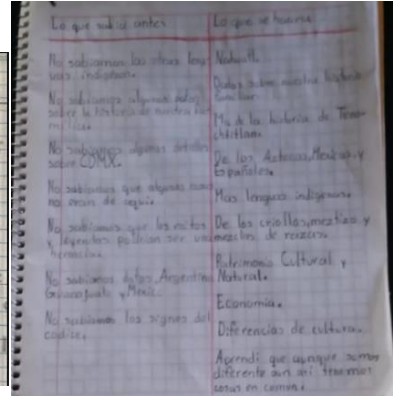 Lo que sabía antes
No sabíamos las otras leng-
uas indígenas.
No sabíamos algunos
sobre la historia de nuestra
No sabíamos algunos detalles
sobre CDMX.
No sabíamos que algunas
no eran de aquí.
No sabíamos que los mitos
y leyendas podían ser
No sabíamos datos, Argentina
Guanajuato y
No sabíamos los signos del
códice.
Lo que se ahora
Nahuatl.
Datos sobre nuestra historia
familiar
Mas de la historia de Teno-
chtitlan.
De los Aztecas, Mexicas y
Españoles.
Mas lenguas indígenas.
De los criollos, mestizo y
mezclas de razas.
Patrimonio Cultural y
Natural.
Economía.
Diferencias de cultura.
Aprendi que aunque somos
diferente aun así tenemos
cosas en común.